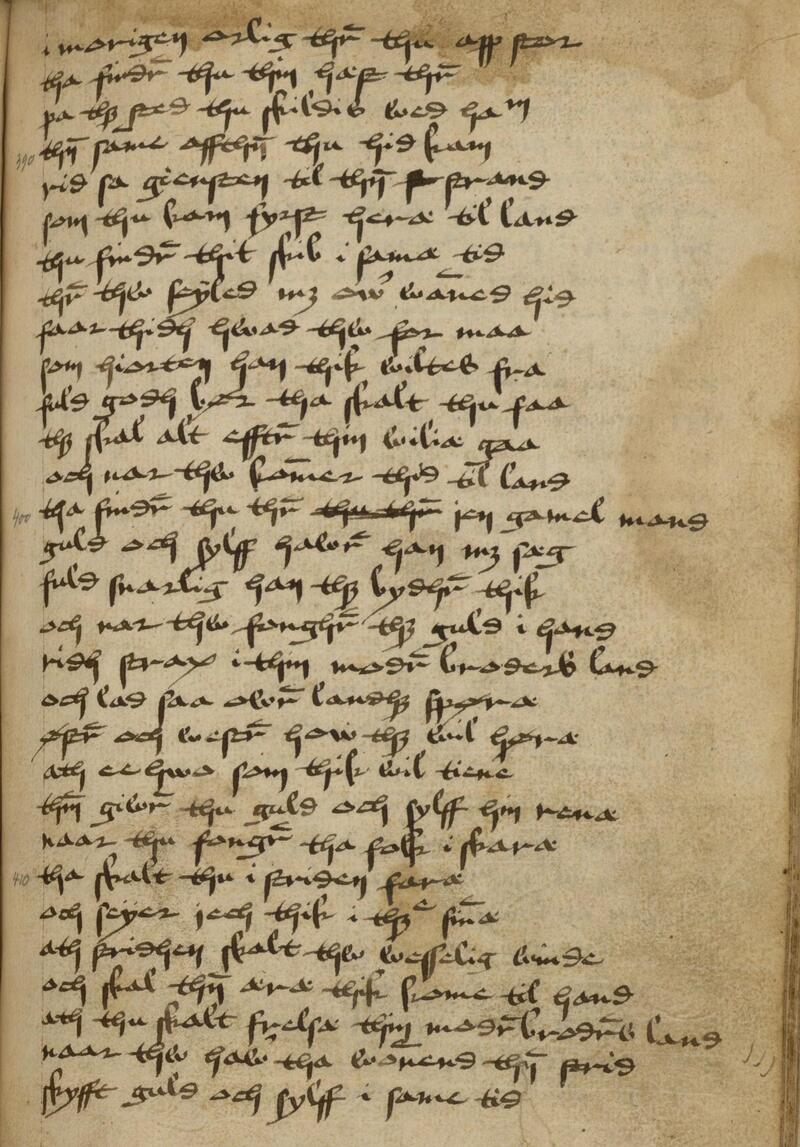 i morigen arlig thr̄ thu aff stor
tha findr̄ thu thin hæst thr̄
pa thꝫ sted thu skildis wed ham
390 thn̄ same affthn̄ thu hid kam
rid sa giensten til thn̄ strand
som thu kam fyrst heræ til land
thu findr̄ thit skib i samæ tid
thr̄ thw seyled mꝫ owr̄ wāned hid
faar thidh hwad thw for maa
som hiorten han thik wiltes fra
fuld godh bør tha skalt thu faa
thꝫ skal alt efftr̄ thin wiliæ gaa
och nar thw kom̄er thid til land
400 tha findr̄ thu thr̄ thu thr̄ jen gamel mand
guld och sylff hawr̄ han mꝫ sæg
fuld snarlig han thꝫ bydhr̄ thik
och nar thw fonghr̄ thꝫ guld i hand
ridh strax i thin modr̄ broders land
och lad saa owr̄ landhꝫ spøræ
østr̄ och westr̄ how thꝫ wil høræ
ath ee hwo som thik wil tiene
thm̄ giwr̄ thu guld och sylff hin renæ
naar thu fongr̄ tha folk i skaræ
410 tha skalt thu i striden faræ
och seyer jech thik i thꝫe sin̄æ
ath stridhen skalt thw wesselig winde
och skal thn̄ æræ thik kome til hand
ath thu skalt frelsæ thin modr̄brodr̄s land
naar thw hawr̄ tha wonend thn̄ strid
skyfft guld och sylff i same tid